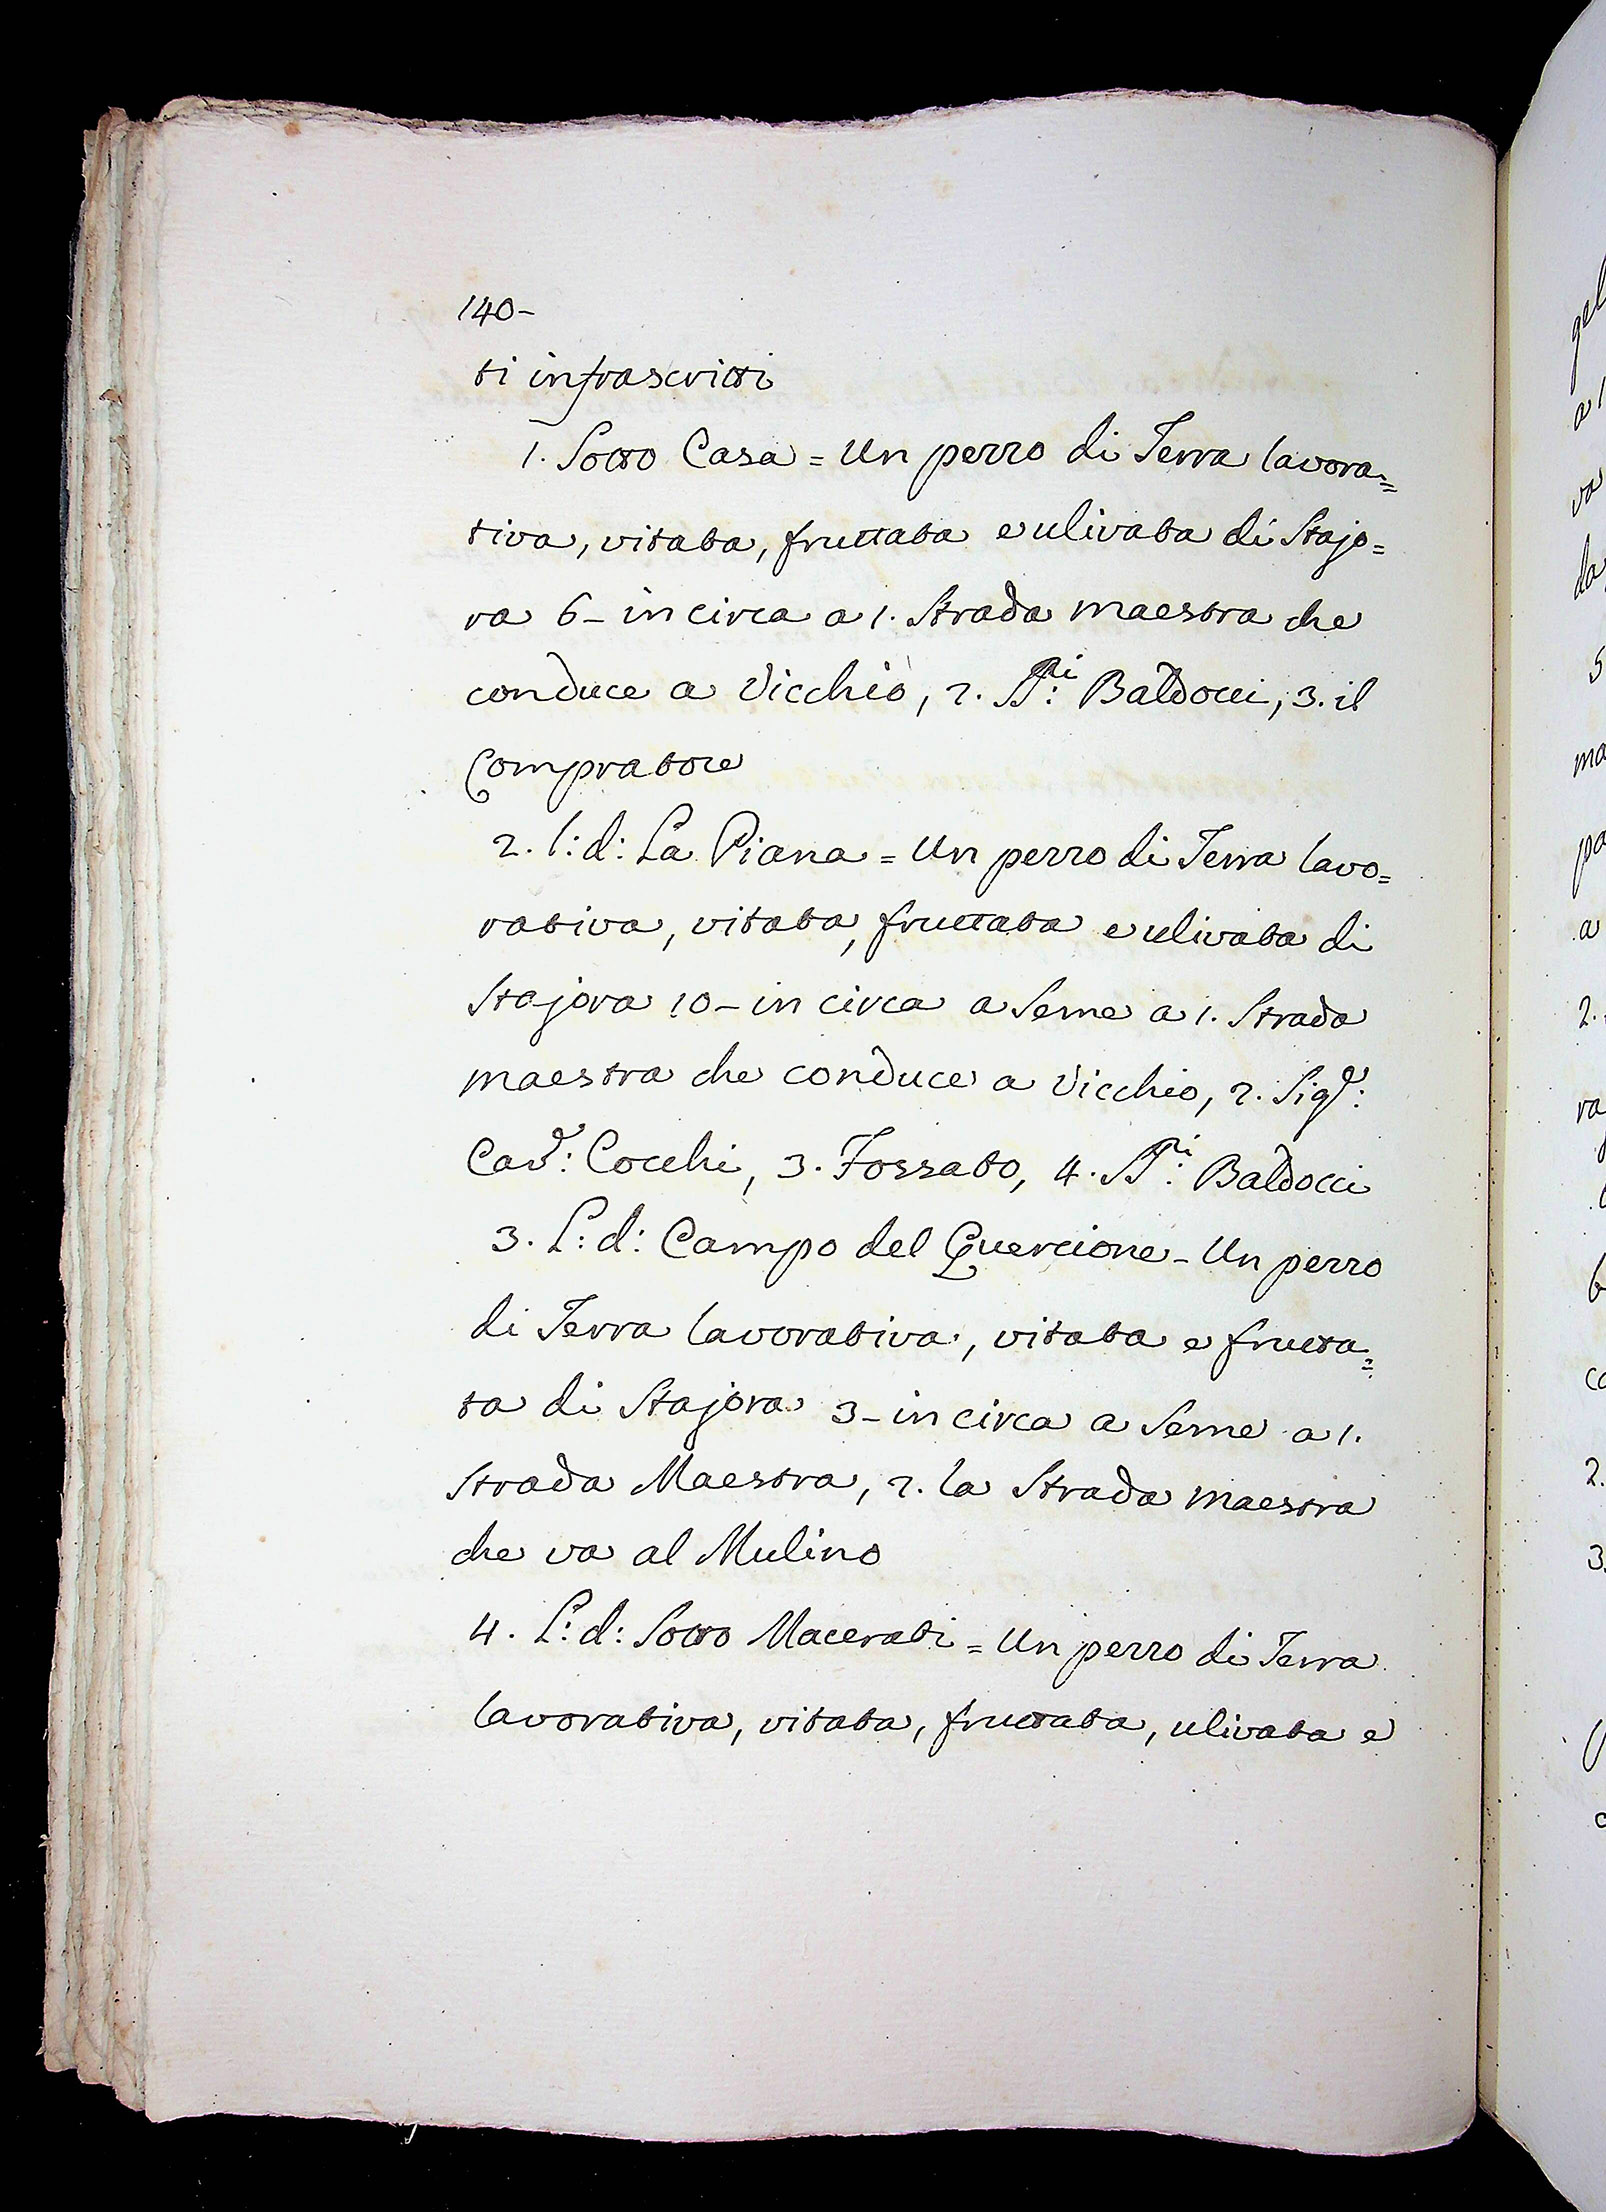 140-
ti infrascritti
1. Sotto Casa = Un pezzo di Terra lavora=
tiva, vitata, fruttata e ulivata di Stajo=
ra 6- in circa a 1. Strada maestra che
conduce a Vicchio, 2. SS.ri: Baldocci, 3. il
Compratore
2. l: d: La Piana = Un pezzo di Terra lavo=
rativa, vitata, fruttata e ulivata di
Stajora 10- in circa a Seme a 1. Strada
maestra che conduce a Vicchio, 2. Sigr:
Cavr: Cocchi, 3. Fossato, 4. SS.ri: Baldocci
3. L: d: Campo del Quercione - Un pezzo
di Terra lavorativa, vitata e frutta=
ta di Stajora 3- in circa a Seme a 1.
Strada Maestra, 2. la Strada maestra
che va al Mulino
4. L: d: Sotto Macerati = Un pezzo di Terra
lavorativa, vitata, fruttata, ulivata e